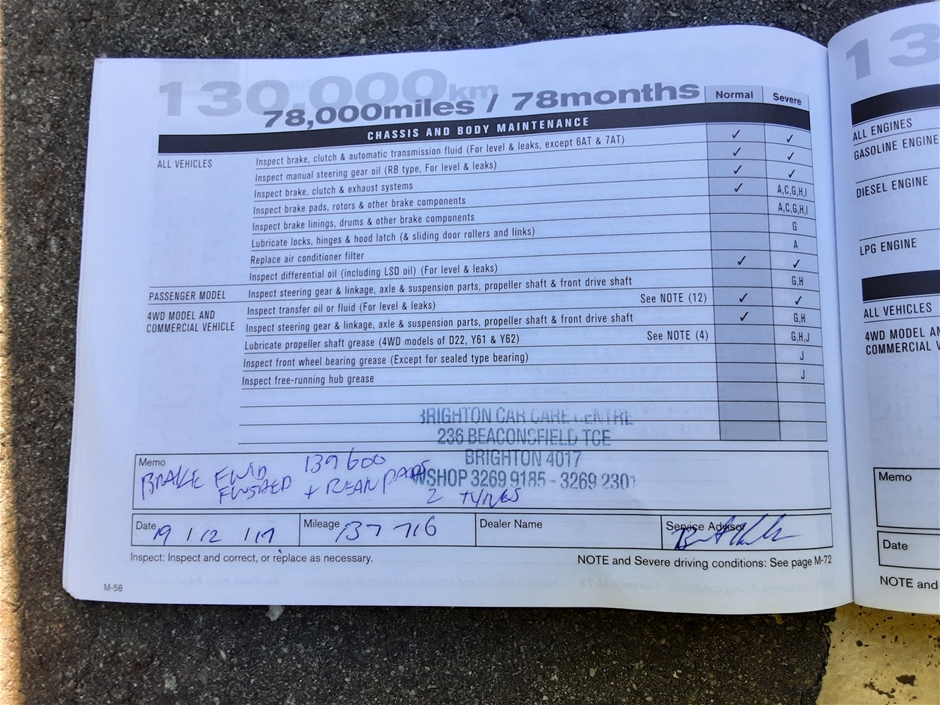 130,000km
78,000miles / 78months
Normal Severe
CHASSIS AND BODY MAINTENANCE
ALL VEHICLES Inspect brake, clutch & automatic transmission fluid (For level & leaks, except 6AT & 7AT) ✓ ✓
Inspect manual steering gear oil (RB type, For level & leaks) ✓ ✓
Inspect brake, clutch & exhaust systems ✓ ✓
Inspect brake pads, rotors & other brake components ✓ A,C,G,H,I
Inspect brake linings, drums & other brake components A,C,G,H,I
Lubricate locks, hinges & hood latch (& sliding door rollers and links) G
Replace air conditioner filter A
Inspect differential oil (including LSD oil) (For level & leaks) ✓ ✓
PASSENGER MODEL Inspect steering gear & linkage, axle & suspension parts, propeller shaft & front drive shaft G,H
4WD MODEL AND COMMERCIAL VEHICLE Inspect transfer oil or fluid (For level & leaks) See NOTE (12) ✓ ✓
Inspect steering gear & linkage, axle & suspension parts, propeller shaft & front drive shaft ✓ G,H
Lubricate propeller shaft grease (4WD models of D22, Y61 & Y62) See NOTE (4) G,H,J
Inspect front wheel bearing grease (Except for sealed type bearing) J
Inspect free-running hub grease J
BRIGHTON CAR CARE CENTRE
236 BEACONSFIELD TCE
BRIGHTON 4017
W/SHOP 3269 9185 - 3269 2301
Memo
BRAKE FLUID 139600
FLUSHED + REAR PADS
2 TYRES
Date 19 / 12 / 17 Mileage 137 716 Dealer Name Service Advisor
Inspect: Inspect and correct, or replace as necessary. NOTE and Severe driving conditions: See page M-72
M-58
13
ALL ENGINES
GASOLINE ENGINE
DIESEL ENGINE
LPG ENGINE
ALL VEHICLES
4WD MODEL AN
COMMERCIAL V
Memo
Date
NOTE and